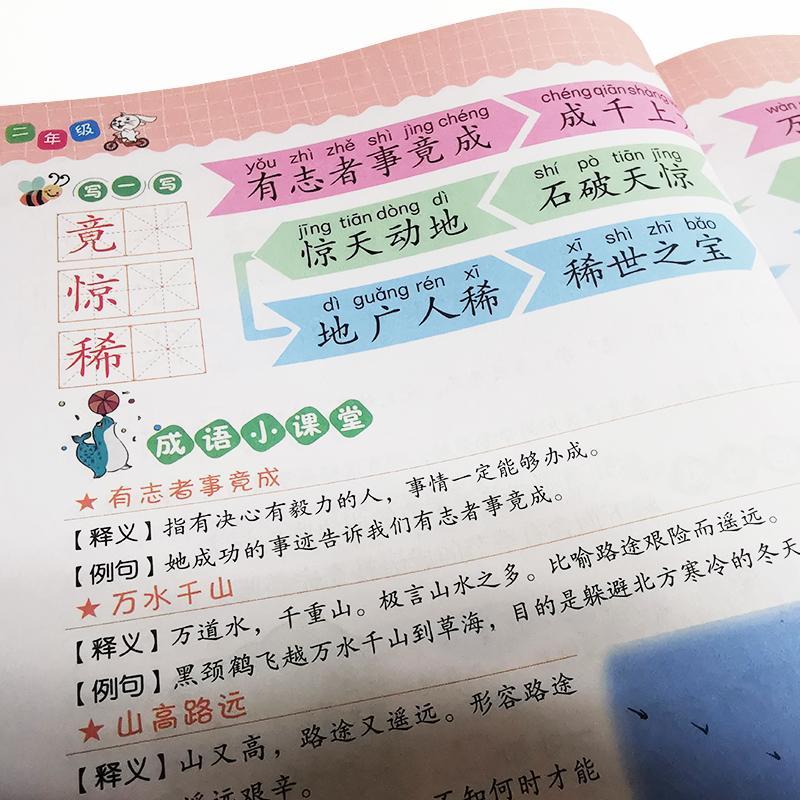 二年级
写一写
竟
惊
稀
yǒu zhì zhě shì jìng chéng
有志者事竟成
chéng qiān shàng
成千上
wàn
万
jīng tiān dòng dì
惊天动地
shí pò tiān jīng
石破天惊
dì guǎng rén xī
地广人稀
xī shì zhī bǎo
稀世之宝
成语小课堂
★有志者事竟成
【释义】指有决心有毅力的人，事情一定能够办成。
【例句】她成功的事迹告诉我们有志者事竟成。
★万水千山
【释义】万道水，千重山。极言山水之多。比喻路途艰险而遥远。
【例句】黑颈鹤飞越万水千山到草海，目的是躲避北方寒冷的冬天
★山高路远
【释义】山又高，路途又遥远。形容路途
遥远艰辛。
不知何时才能